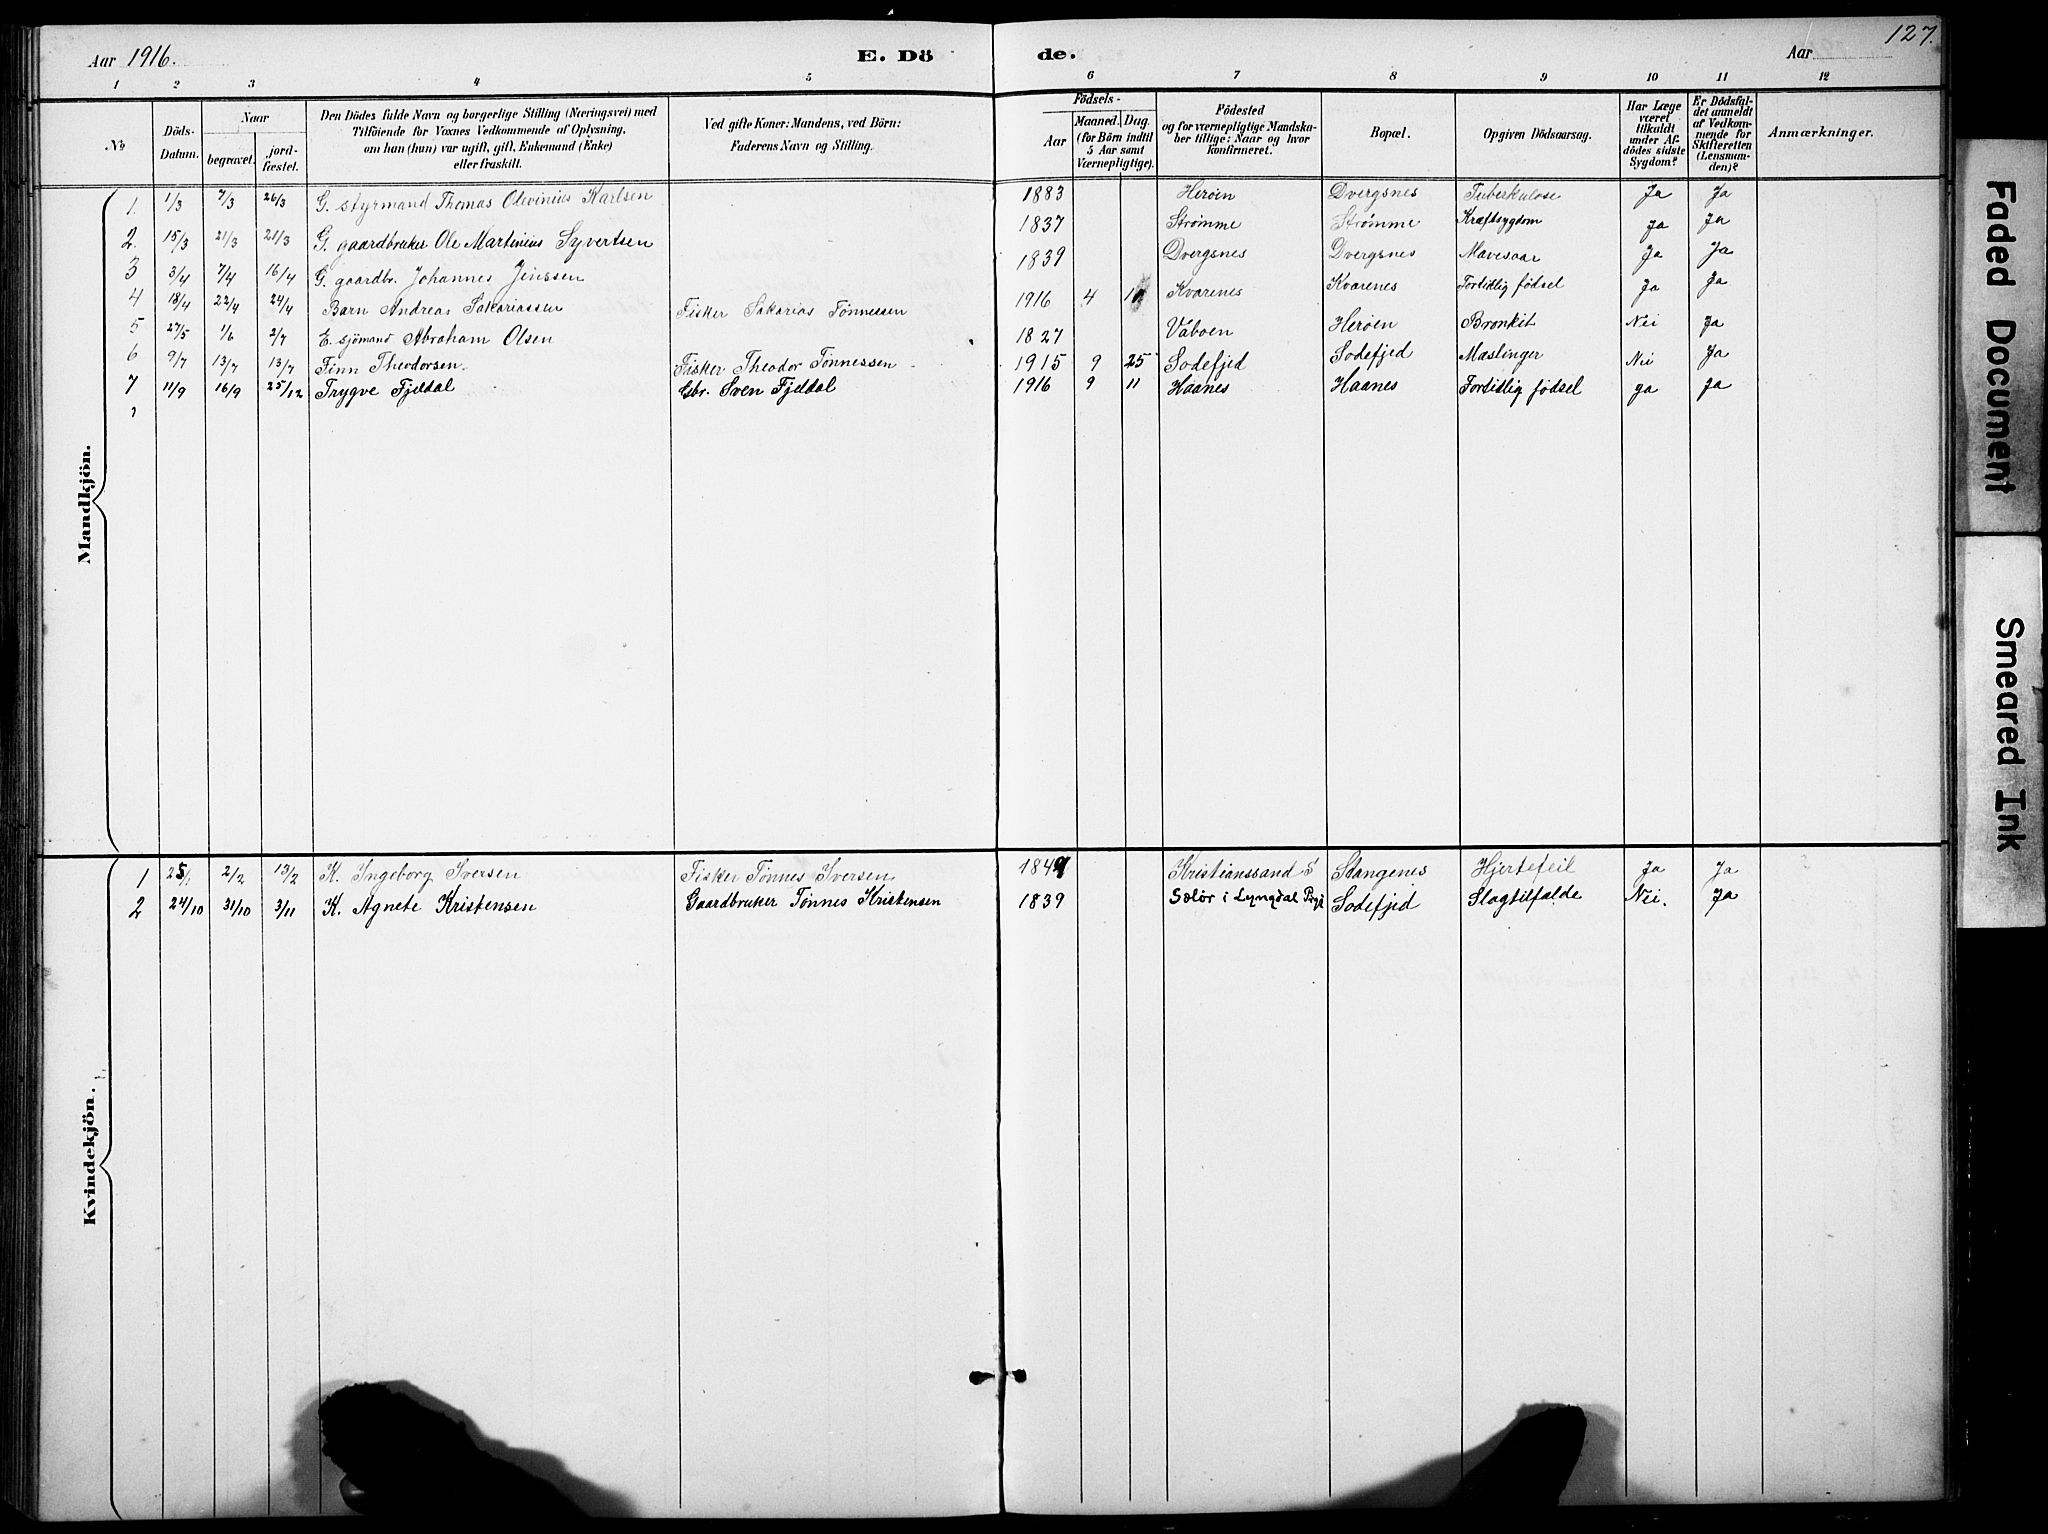 Aar 1916. E. Dö de. Aar 127.
1 2 3 4 5 6 7 8 9 10 11 12
№ Döds-Datum. Naar begravet. jord-fæstet. Den Dödes fulde Navn og borgerlige Stilling (Næringsvei) med Tilföiende for Voxnes Vedkommende af Oplysning, om han (hun) var ugift, gift, Enkemand (Enke) eller fraskilt. Ved gifte Koner: Mandens, ved Börn: Faderens Navn og Stilling. Födsels- Aar Maaned. Dag. (for Börn indtil 5 Aar samt Værnepligtige). Födested og for værnepligtige Mandska-ber tillige: Naar og hvor konfirmeret. Bopæl. Opgiven Dödsaarsag. Har Læge været tilkaldt under Af-dödes sidste Sygdom? Er Dödsfal-det anmeldt af Vedkom-mende for Skifteretten (Lensman-den)? Anmærkninger.
Mandkjön.
1. 1/3 7/3 26/3 G. Styrmand Thomas Olevinius Karlsen 1883 Herøen Dvergsnes Tuberkulose Ja Ja
2. 15/3 21/3 21/3 G. gaardbruker Ole Martinius Syvertsen 1837 Strømme Strømme Kræftsygdom Ja Ja
3 3/4 7/4 16/4 G. gaardbr. Johannes Jenssen 1839 Dvergsnes Dvergsnes Mavesaar Ja Ja
4 18/4 22/4 24/4 Barn Andreas Sakariassen Fisker Sakarias Tønnessen 1916 4 Kvarenes Kvarenes Fortidlig fødsel Ja Ja
5 27/5 1/6 2/7 E. sjömand Abraham Olsen 1827 Våboen Herøen Bronkit Nei Ja
6 9/7 13/7 13/7 Finn Theodorsen. Fisker Theodor Tønnessen 1915 9 25 Sodefjed Sodefjed Mæslinger Nei Ja
7 11/9 16/9 25/12 Trygve Fjeldal Gbr. Sven Fjeldal 1916 9 11 Haanes Haanes Fortidlig fødsel ja Ja
Kvindekjön.
1 25/1 2/2 13/2 K. Ingeborg Iversen Fisker Tønnes Iversen Kristianssand S Stangenes Hjertefeil Ja Ja
2 24/10 31/10 3/11 K. Agnete Kristensen Gaardbruker Tønnes Kristensen 1839 Sælör i Lyngdal Prgj Sodefjed Slagtilfælde Nei. Ja
Faded Document
Smeared Ink